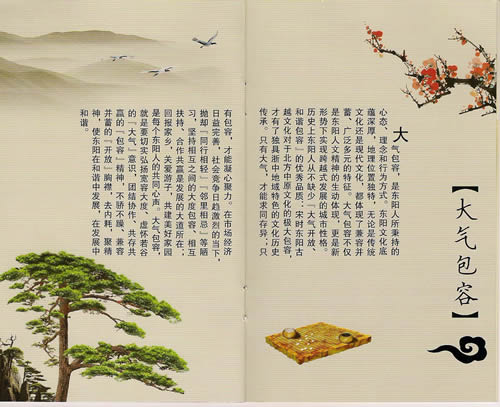 【大气包容】
大气包容，是东阳人所秉持的
心态、理念和行为方式。东阳文化底
蕴深厚，地理位置独特，无论是传统
文化还是现代文化，都体现了兼容并
蓄、广泛多元的特征。大气包容不仅
是东阳人文精神的生动体现，更是新
形势下实现跨越发展的城市性格。
历史上东阳人不缺少“大气开放、
和谐包容”的优秀品质：宋时东阳古
越文化对于北方中原文化的极大包容，
才有了独具浙中地域特色的文化历史
传承。只有大气，才能求同存异；只
有包容，才能凝心聚力。在市场经济
日益完善，社会竞争日趋激烈的当下，
抛却“同行相轻”“邻里相忌”等陋
习，坚持相互之间的大度包容、相互
扶持、合作共赢是发展的大道所在；
回报家乡、关爱游子，共建美好家园
是每个东阳人的共同心声。大气包容，
就是要切实弘扬宽容大度、虚怀若谷
的“大气”意识，团结协作、共存共
赢的“包容”精神，不骄不躁、兼容
并蓄的“开放”胸襟，去内耗，聚精
神，使东阳在和谐中发展，在发展中
和谐。